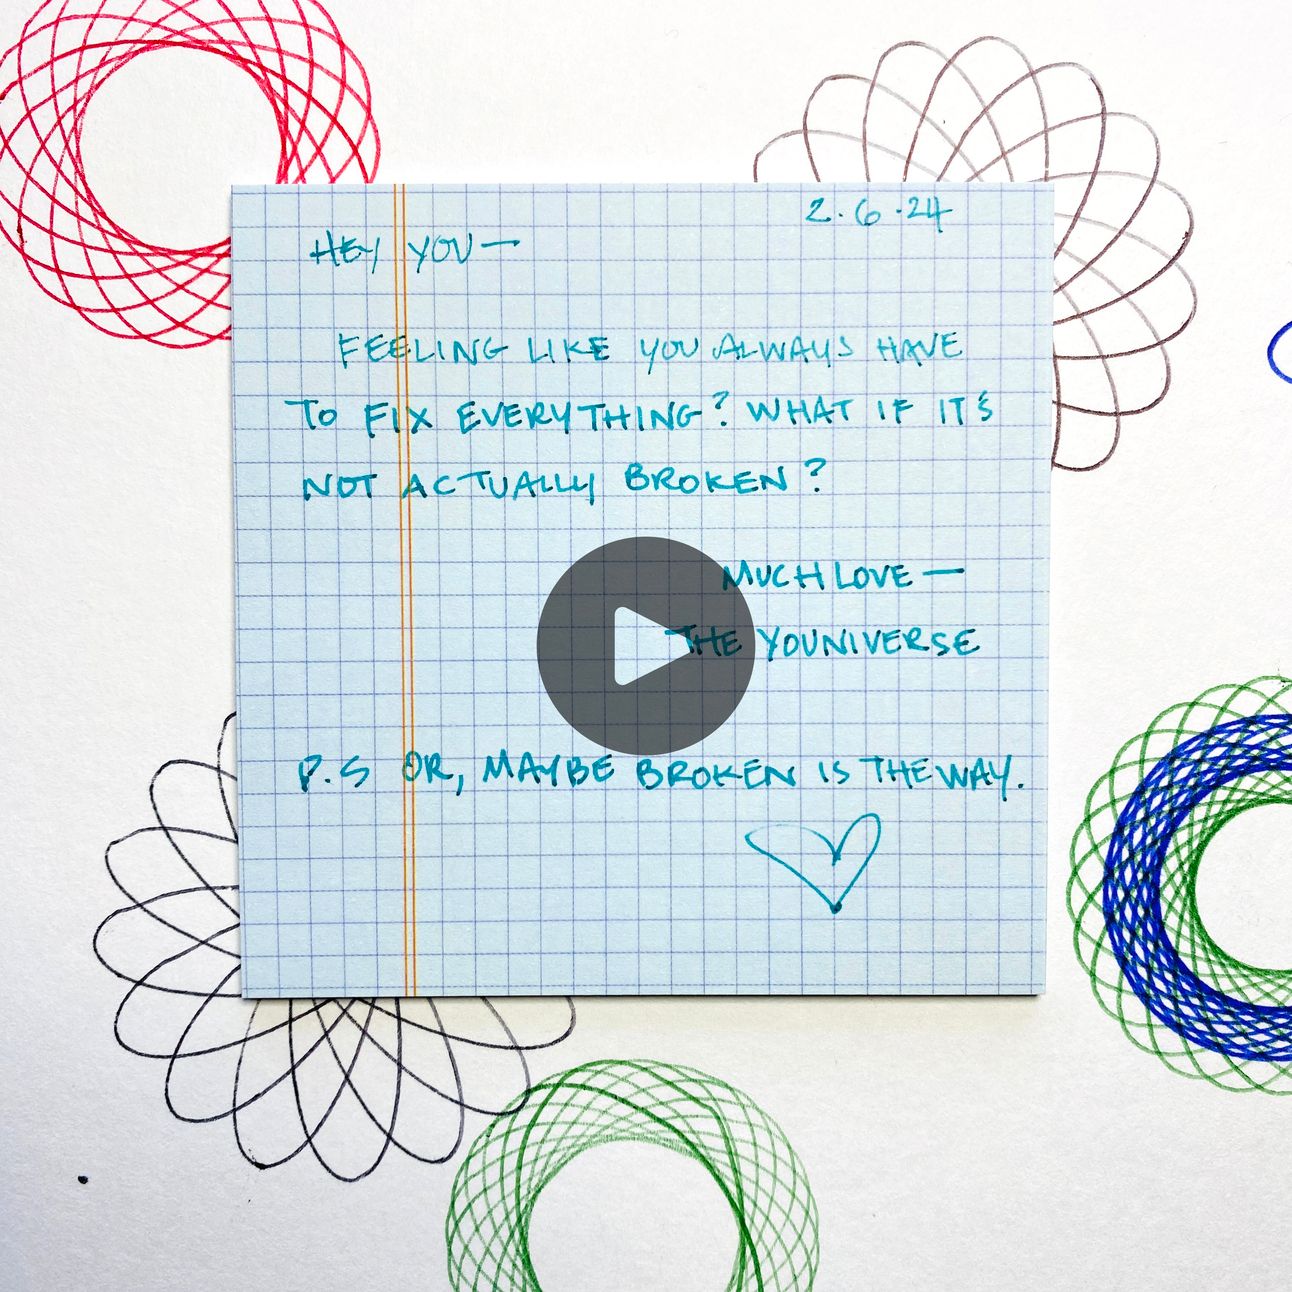 2.6.24
HEY YOU—
FEELING LIKE YOU ALWAYS HAVE
TO FIX EVERYTHING? WHAT IF IT'S
NOT ACTUALLY BROKEN?
MUCH LOVE—
THE YOUNIVERSE
P.S OR, MAYBE BROKEN IS THE WAY.